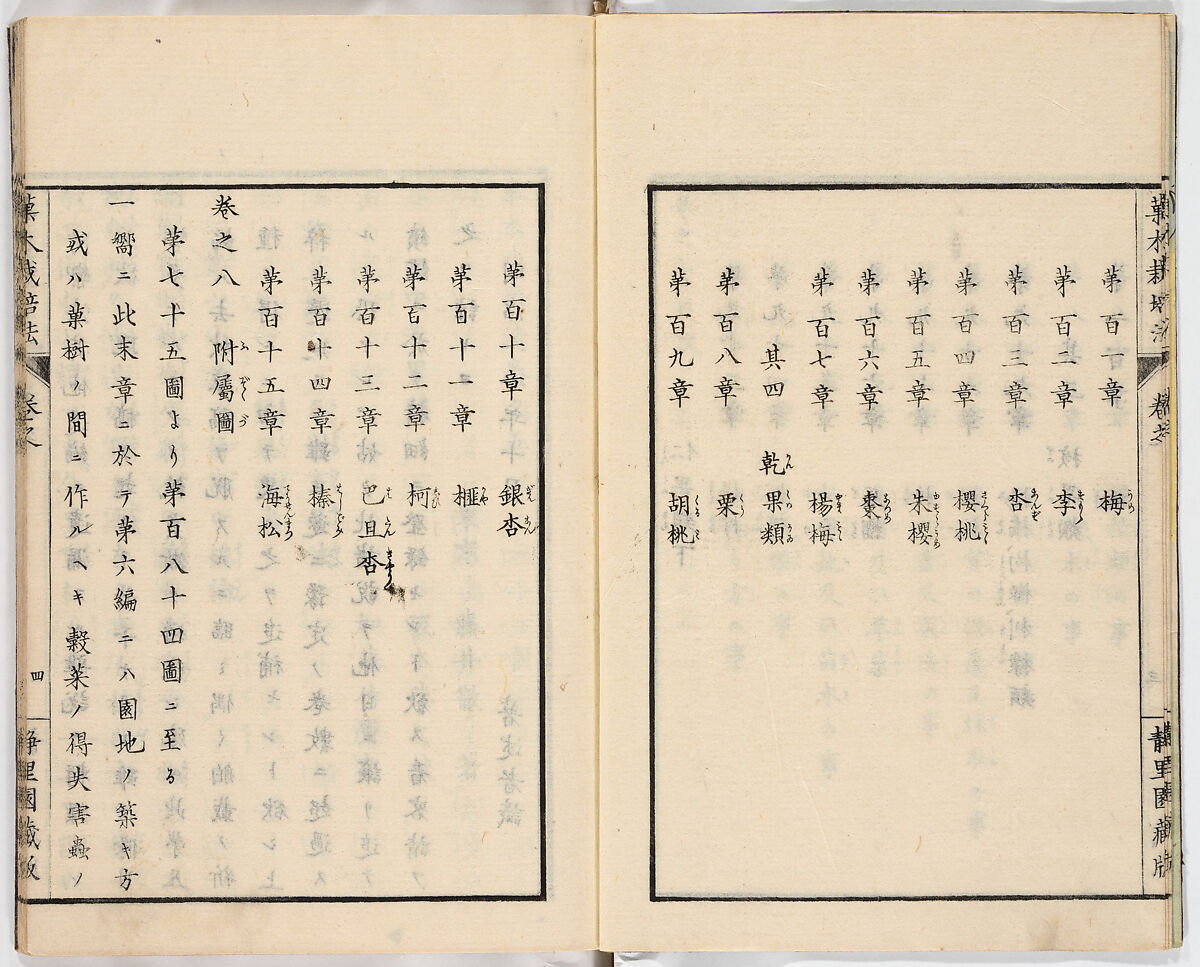 菓木栽培法
卷之
三
静里園藏版
第百一章 梅
第百二章 李
第百三章 杏
第百四章 櫻桃
第百五章 朱櫻
第百六章 棗
第百七章 楊梅
其四 乾果類
第百八章 栗
第百九章 胡桃
第百十章 銀杏
第百十一章 榧
第百十二章 柯
第百十三章 巴旦杏
第百十四章 榛
第百十五章 海松
卷之八 附屬圖
第七十五圖より第百八十四圖ニ至る
一嚮ニ此末章ニ於テ第六編ニハ園地ノ築キ方
或ハ菓樹ノ間ニ作ルヘキ穀菜ノ得失害蟲ノ
菓木栽培法
卷之
四
静里園藏版